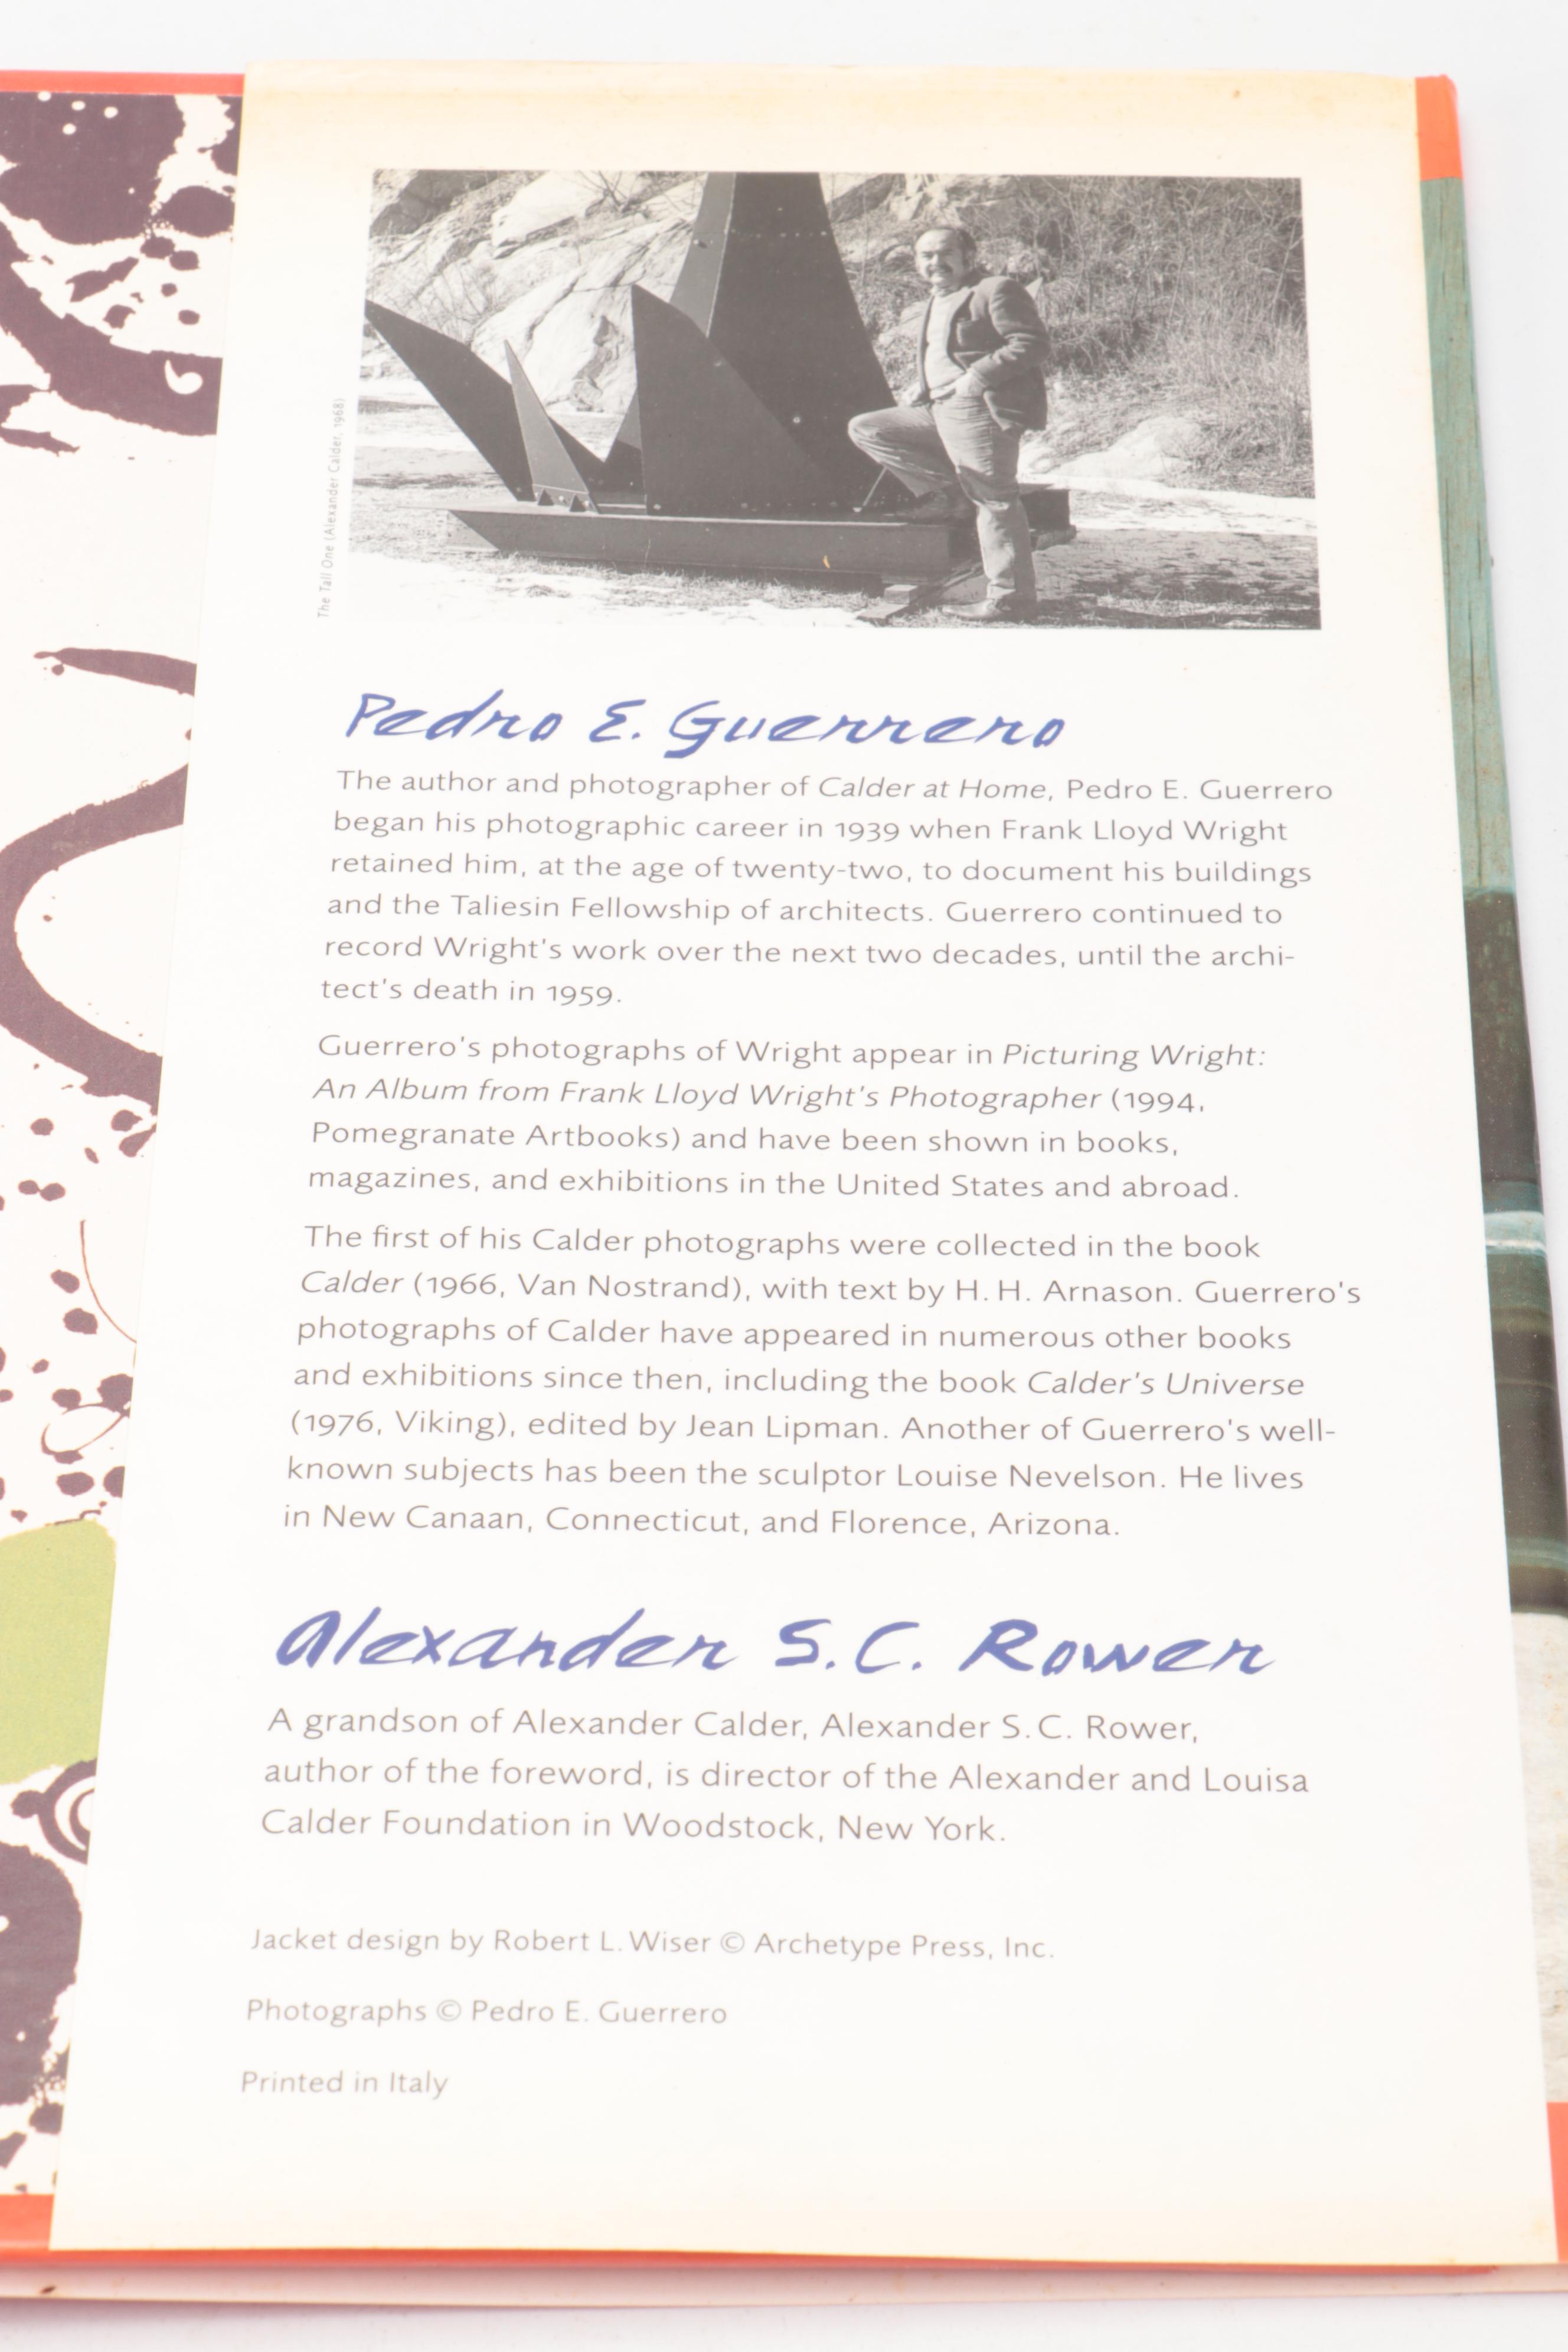 The Tall One (Alexander Calder, 1968)
Pedro E. Guerrero
The author and photographer of Calder at Home, Pedro E. Guerrero
began his photographic career in 1939 when Frank Lloyd Wright
retained him, at the age of twenty-two, to document his buildings
and the Taliesin Fellowship of architects. Guerrero continued to
record Wright's work over the next two decades, until the archi-
tect's death in 1959.
Guerrero's photographs of Wright appear in Picturing Wright:
An Album from Frank Lloyd Wright's Photographer (1994,
Pomegranate Artbooks) and have been shown in books,
magazines, and exhibitions in the United States and abroad.
The first of his Calder photographs were collected in the book
Calder (1966, Van Nostrand), with text by H. H. Arnason. Guerrero's
photographs of Calder have appeared in numerous other books
and exhibitions since then, including the book Calder's Universe
(1976, Viking), edited by Jean Lipman. Another of Guerrero's well-
known subjects has been the sculptor Louise Nevelson. He lives
in New Canaan, Connecticut, and Florence, Arizona.
Alexander S.C. Rower
A grandson of Alexander Calder, Alexander S.C. Rower,
author of the foreword, is director of the Alexander and Louisa
Calder Foundation in Woodstock, New York.
Jacket design by Robert L. Wiser © Archetype Press, Inc.
Photographs © Pedro E. Guerrero
Printed in Italy